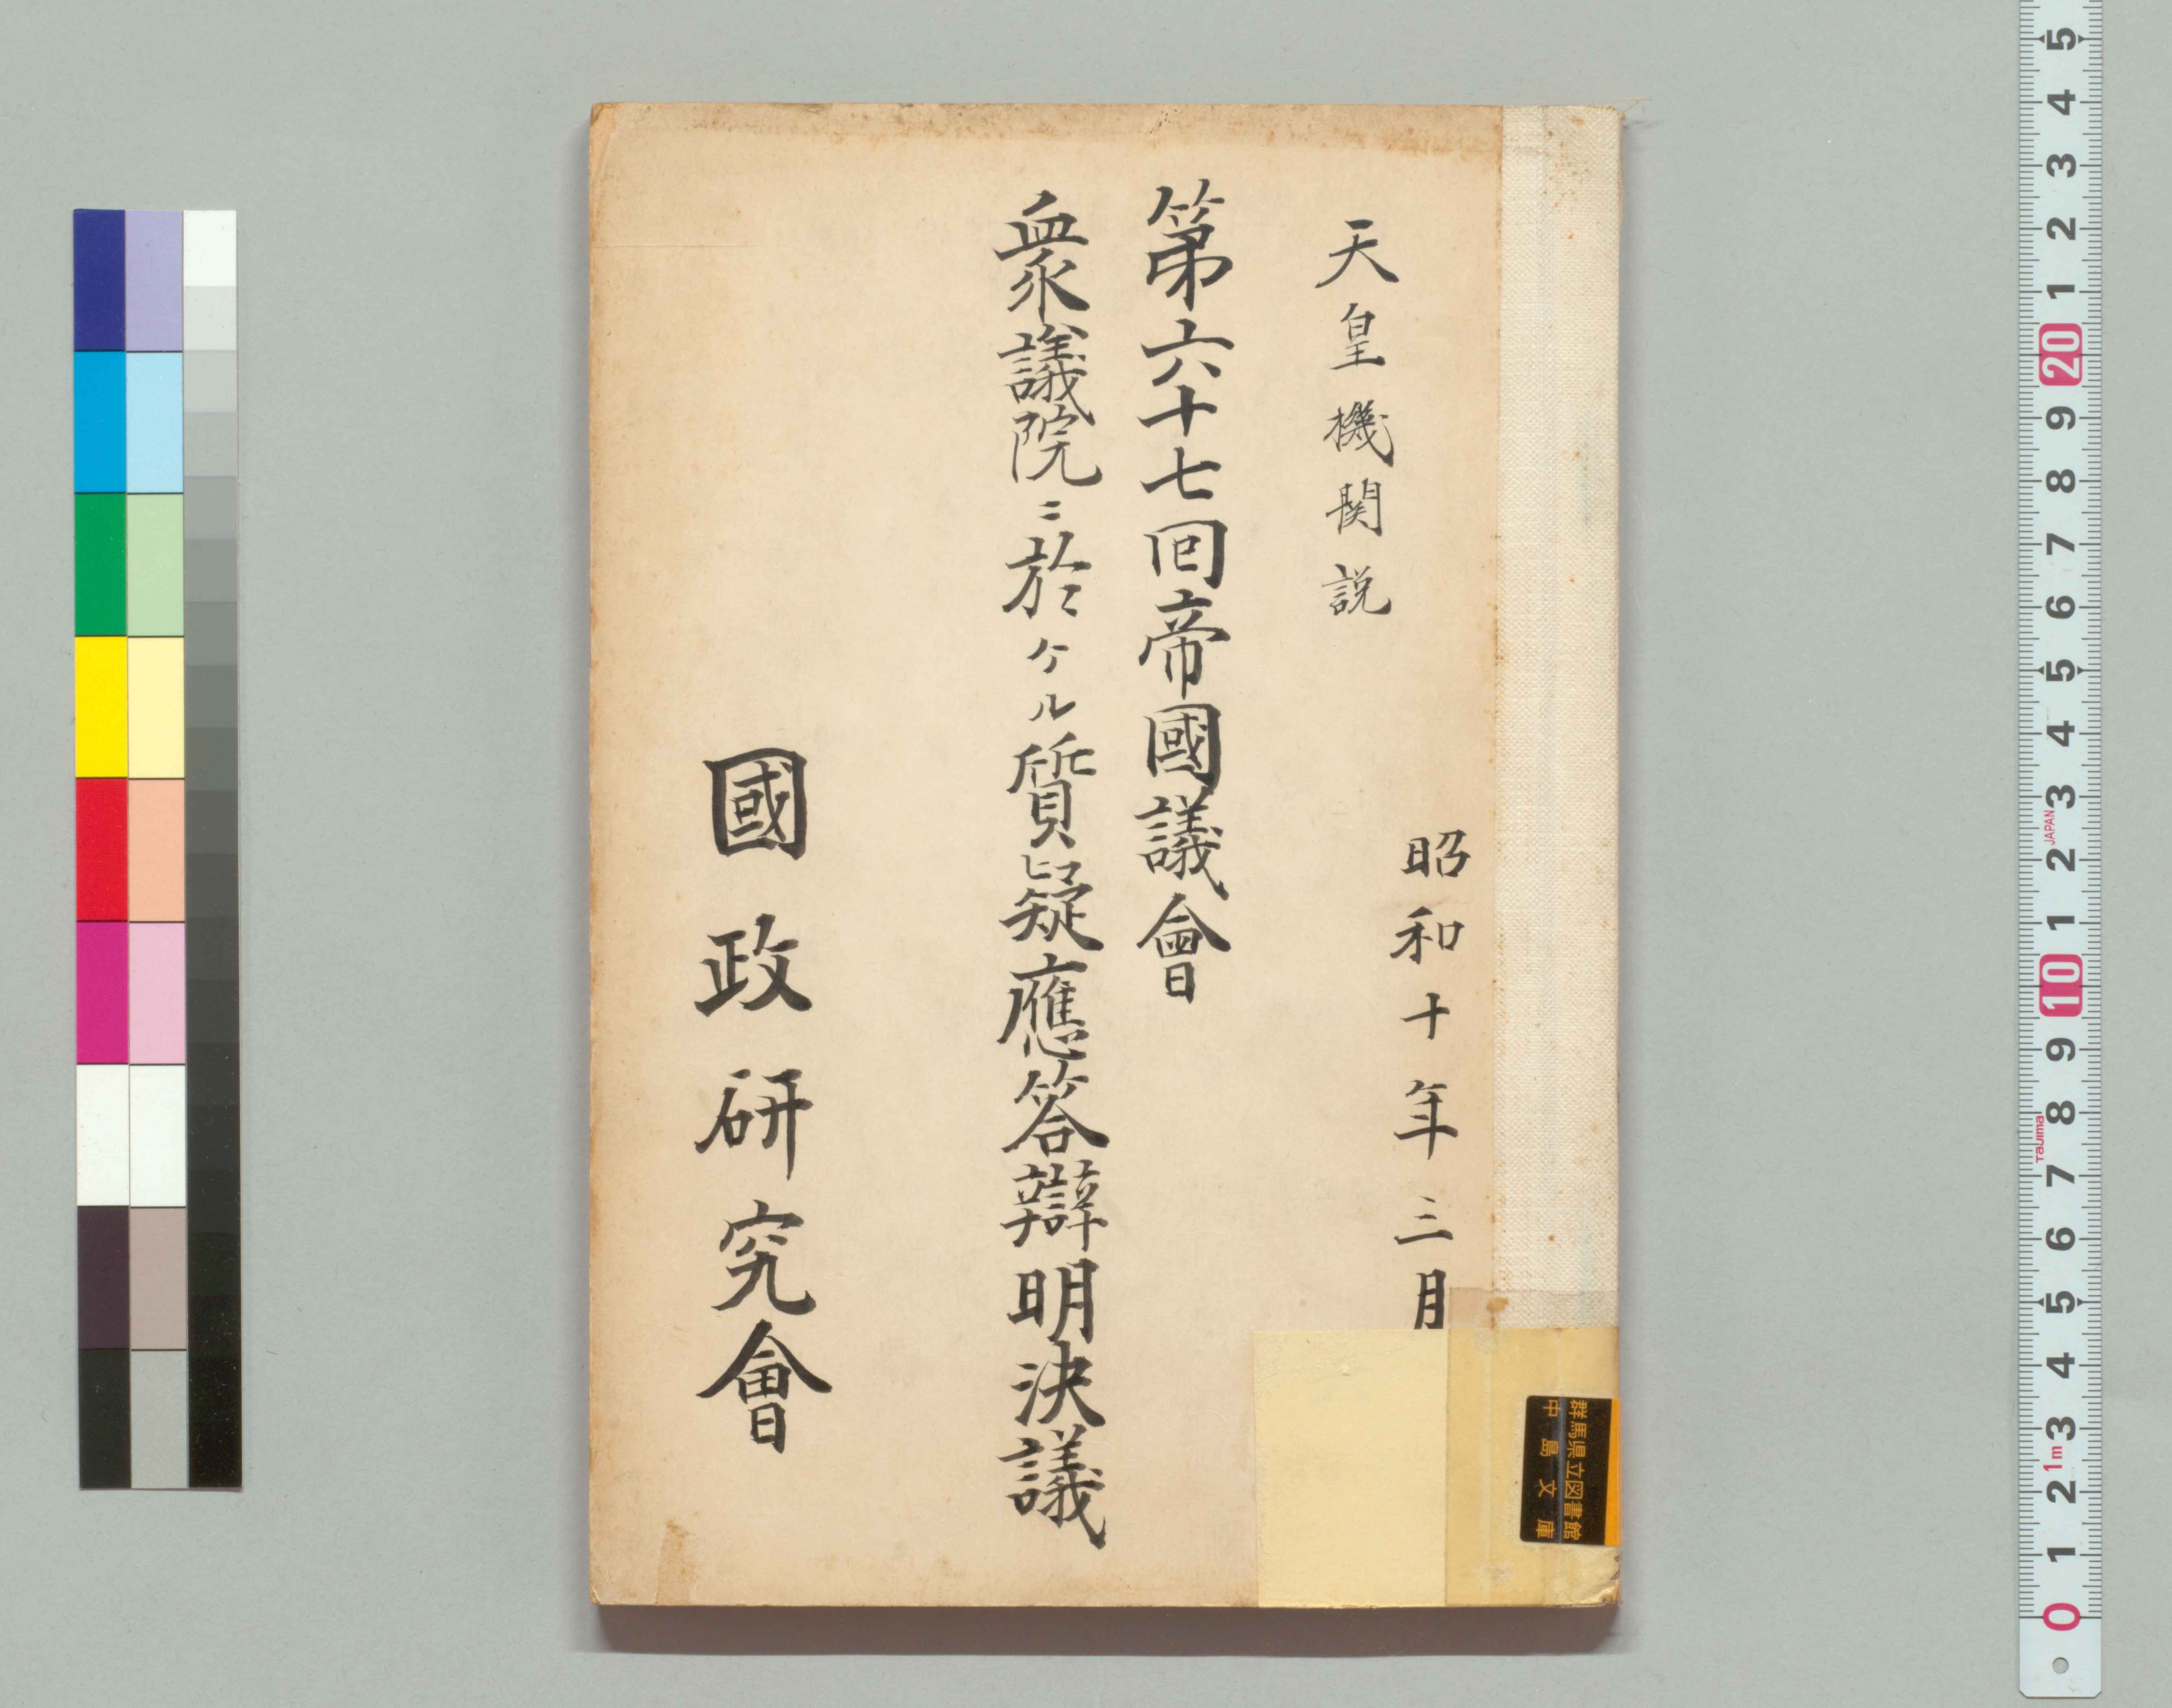 昭和十年三月
天皇機関説
第六十七回帝國議會
衆議院ニ於ケル質疑應答辯明決議
國政研究會
群馬県立図書館
中島文庫
5
4
3
2
1
20
9
8
7
6
5
4
3
JAPAN
2
1
10
9
8
TaJima
7
6
5
4
3
1m
2
1
0